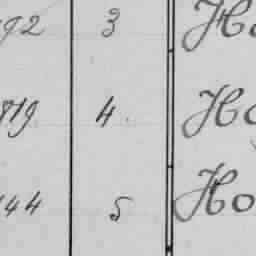 92 3 Ho
819 4. Ho
44 5 Ho